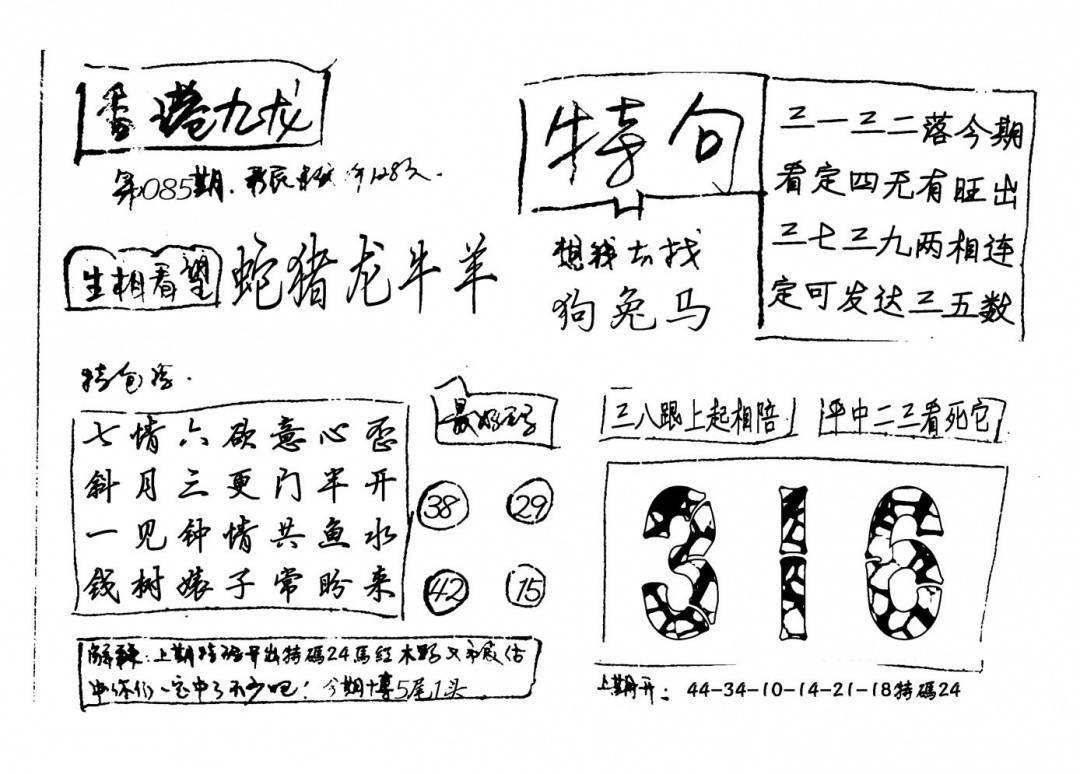 香港九龙
第085期.
生相看望
蛇猪龙牛羊
特句
想我去找
狗兔马
三一三二落今期
看定四无有旺出
三七三九两相连
定可发达三五数
特包
七情六欲意心歪
斜月三更门半开
一见钟情共鱼水
钱树婊子常盼来
最好
38 29
42 15
三八跟上起相陪
平中二三看死它
316
解:上期特 开出特碼24馬紅木野又
中 你们一定中了不少吧! 今期博5尾1头
上期开: 44-34-10-14-21-18特碼24